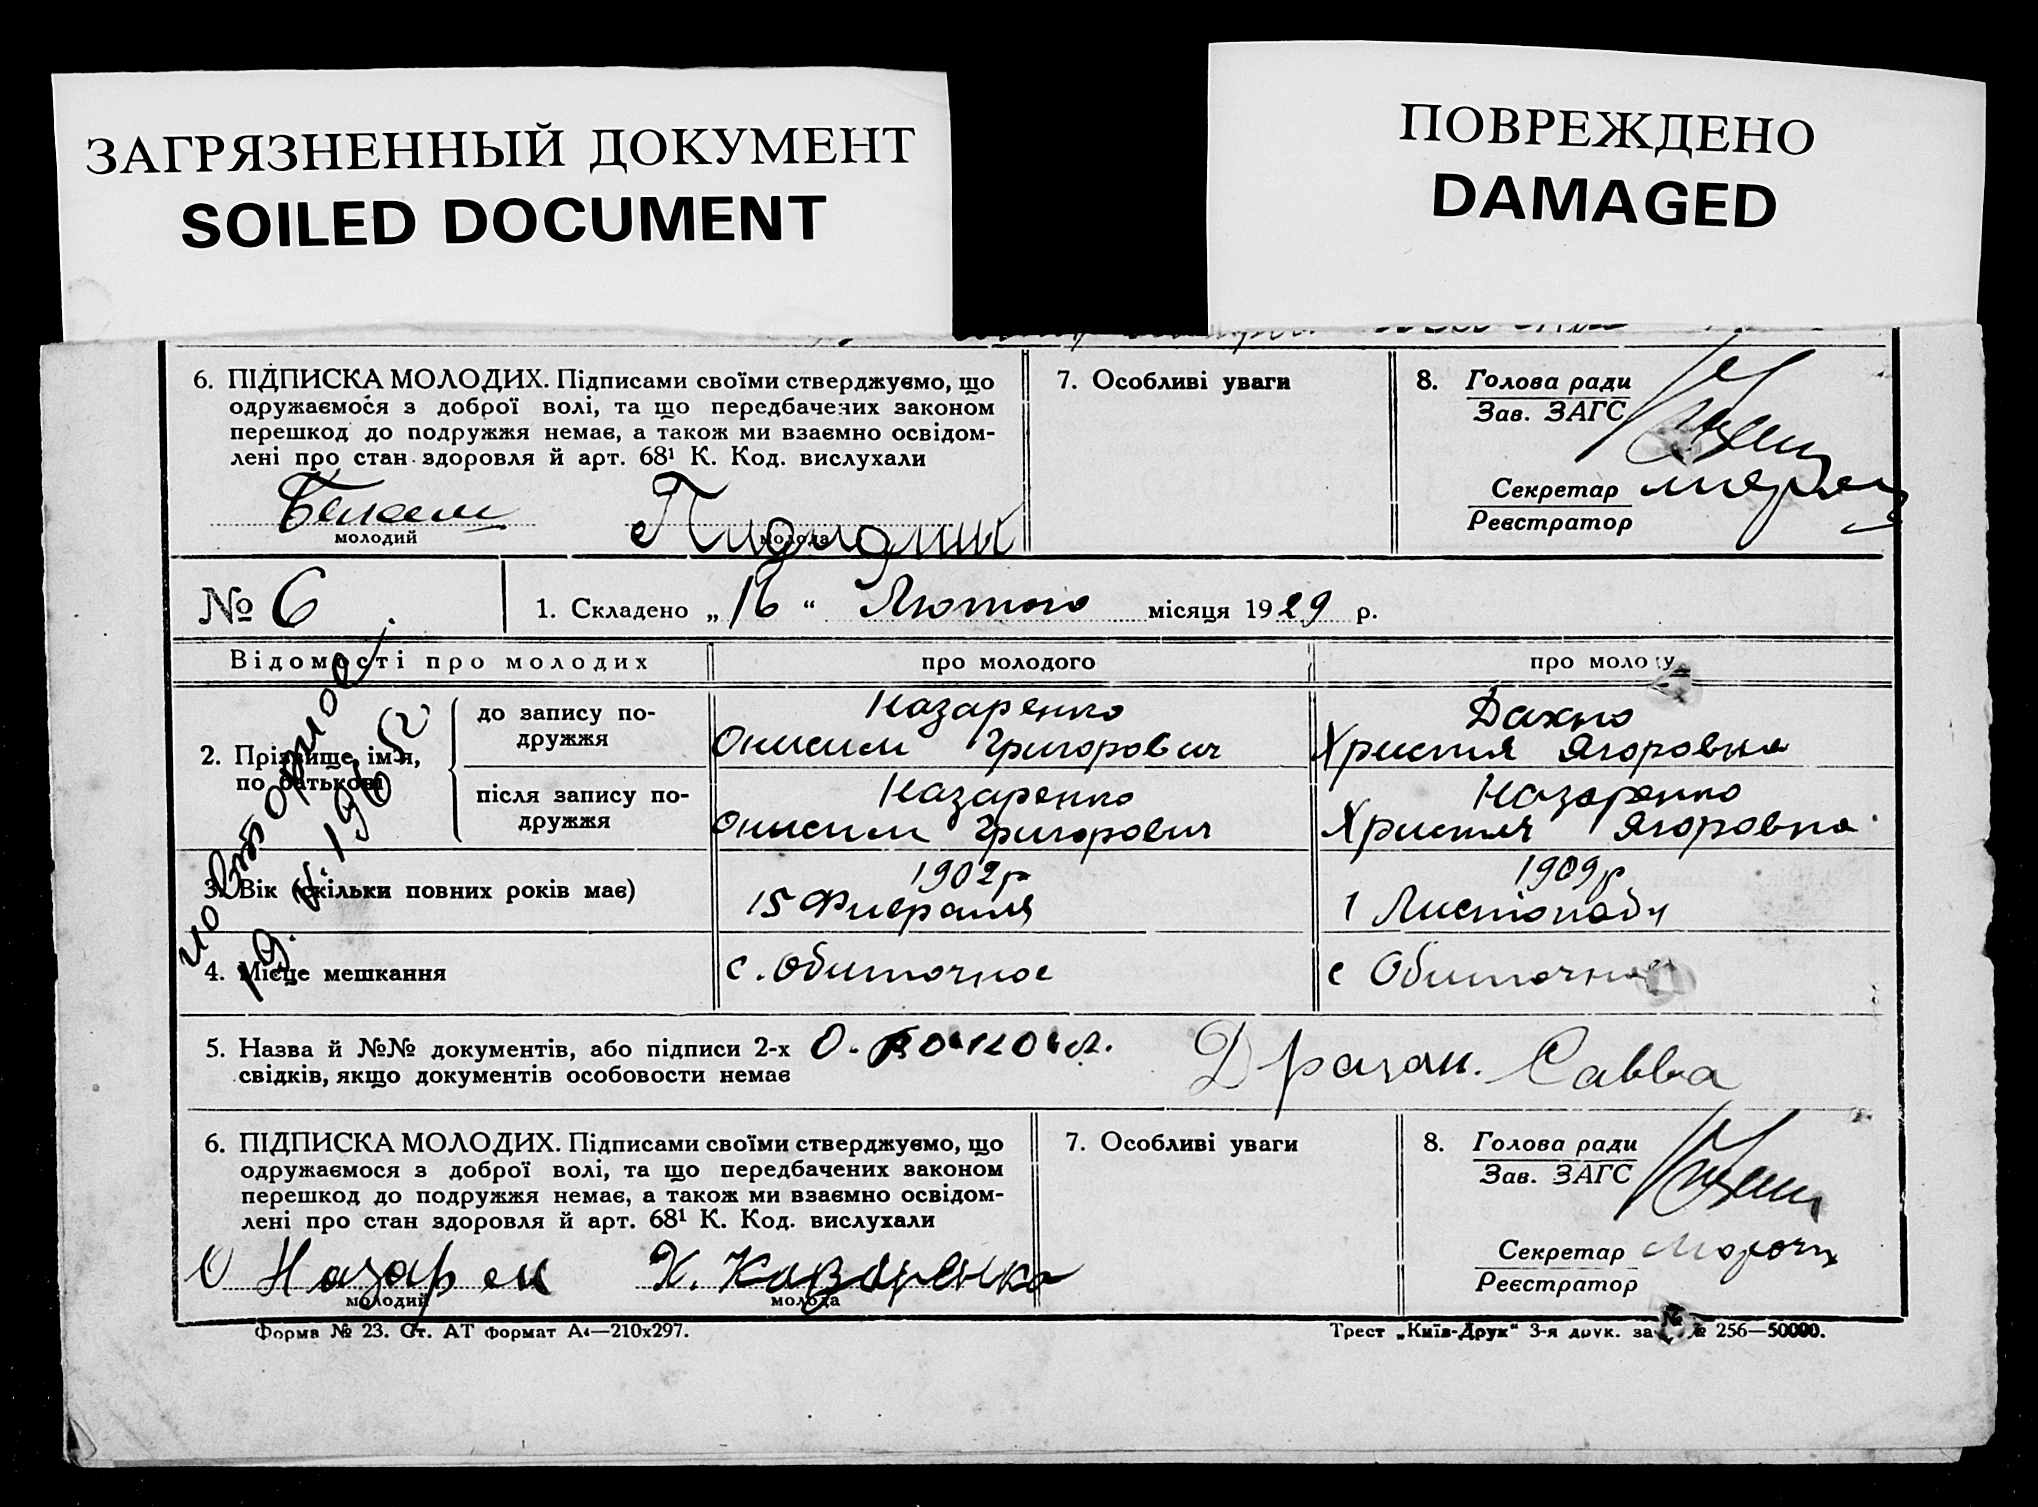 ЗАГРЯЗНЕННЫЙ ДОКУМЕНТ
SOILED DOCUMENT
ПОВРЕЖДЕНО
DAMAGED
6. ПІДПИСКА МОЛОДИХ. Підписами своїми стверджуємо, що
одружаємося з доброї волі, та що передбачених законом
перешкод до подружжя немає, а також ми взаємно освідом-
лені про стан здоровля й арт. 68¹ К. Код. вислухали
молодий
молода
7. Особливі уваги
8. Голова ради
Зав. ЗАГС
Секретар
Реєстратор
№ 6
1. Складено „ 16 “ Лютого місяця 1929 р.
Відомості про молодих
про молодого
про молоду
повторное
19. V. 196 г.
2. Прізвище, ім'я,
по батькові
до запису по-
дружжя
Назаренко
Онисим Григорович
Дахно
Христя Ягоровна
після запису по-
дружжя
Назаренко
Онисим Григорович
Назаренко
Христя Ягоровна
3. Вік (скільки повних років має)
1902 р
15 Фиераля
1909 р
1 Листопада
4. Місце мешкання
с. Обиточное
с Обиточное
5. Назва й №№ документів, або підписи 2-х
свідків, якщо документів особовости немає
Драган. Савва
6. ПІДПИСКА МОЛОДИХ. Підписами своїми стверджуємо, що
одружаємося з доброї волі, та що передбачених законом
перешкод до подружжя немає, а також ми взаємно освідом-
лені про стан здоровля й арт. 68¹ К. Код. вислухали
О Назарен
молодий
Х. Назаренко
молода
7. Особливі уваги
8. Голова ради
Зав. ЗАГС
Секретар
Реєстратор
Форма № 23. Ст. АТ формат А4—210х297.
Трест „Київ-Друк“ 3-я друк. за № 256—50000.